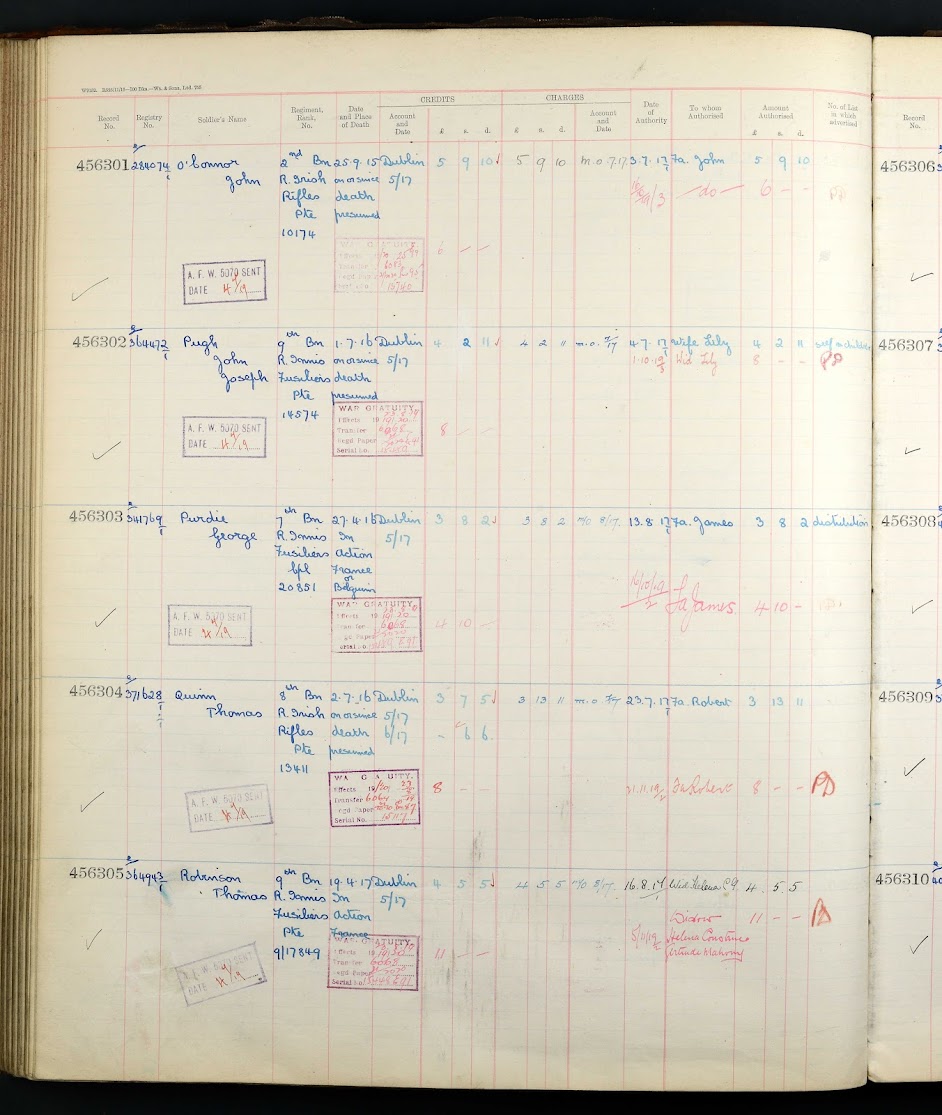 CREDITS CHARGES
Record No. Registry No. Soldier's Name Regiment, Rank, No. Date and Place of Death Account and Date £ s. d. £ s. d. Account and Date Date of Authority To whom Authorised Amount £ s. d. No. of List in which advertised Record No.
456301 284074/1 O'Connor 2nd Bn 25.9.15 Dublin 5 9 10 5 9 10 m.o. 7.17 3.7.17 Fa. John 5 9 10 456306
John R. Irish on or since 5/17
Rifles death do 6 - -
Pte presumed
10174
WAR GRATUITY 6 - -
A. F. W. 5070 SENT
DATE 4/9/19
456302 364472/1 Pugh 9th Bn 1.7.16 Dublin 4 2 11 4 2 11 m.o. 7/17 4.7.17 Wife Lily 4 2 11 self & children 456307
John R. Innis on or since 5/17 1.10.19 Wid Lily 8 - -
Joseph Fusiliers death
Pte presumed
14574
WAR GRATUITY
Effects
Transfer
Regd Paper
Serial No.
8 - -
A. F. W. 5070 SENT
DATE 4/9/19
456303 341769/1 Purdie 7th Bn 27.4.16 Dublin 3 8 2 3 8 2 m/o 8/17 13.8.17 Fa. James 3 8 2 distribution 456308
George R. Innis In 5/17
Fusiliers Action
Cpl France
or
20851 Belguim
16/10/19 Fa James 4 10 -
WAR GRATUITY
Effects
Transfer 6068
4 10 -
A. F. W. 5070 SENT
DATE 4/9/19
456304 371628/1 Quinn 8th Bn 2.7.16 Dublin 3 7 5 3 13 11 m.o. 7/17 23.7.17 Fa. Robert 3 13 11 456309
Thomas R. Irish on or since 5/17
Rifles death 6/17 - 6 6
Pte presumed
13411
WAR GRATUITY.
Effects
Transfer
Regd Paper
Serial No.
8 - - 21.11.19 Fa Robert 8 - -
A. F. W. 5070 SENT
DATE 4/9/19
456305 364943/1 Robinson 9th Bn 19.4.17 Dublin 4 5 5 4 5 5 m/o 8/17 16.8.17 Wid. Helena C.G. 4 5 5 456310
Thomas R. Innis In 5/17
Fusiliers Action
Pte France Widow 11 - -
9/17849 5/11/19 Helena Constance
Gertrude Mahony
WAR GRATUITY
Effects
Transfer 6068
Regd Paper
Serial No.
11 - -
A. F. W. 5070 SENT
DATE 4/9/19